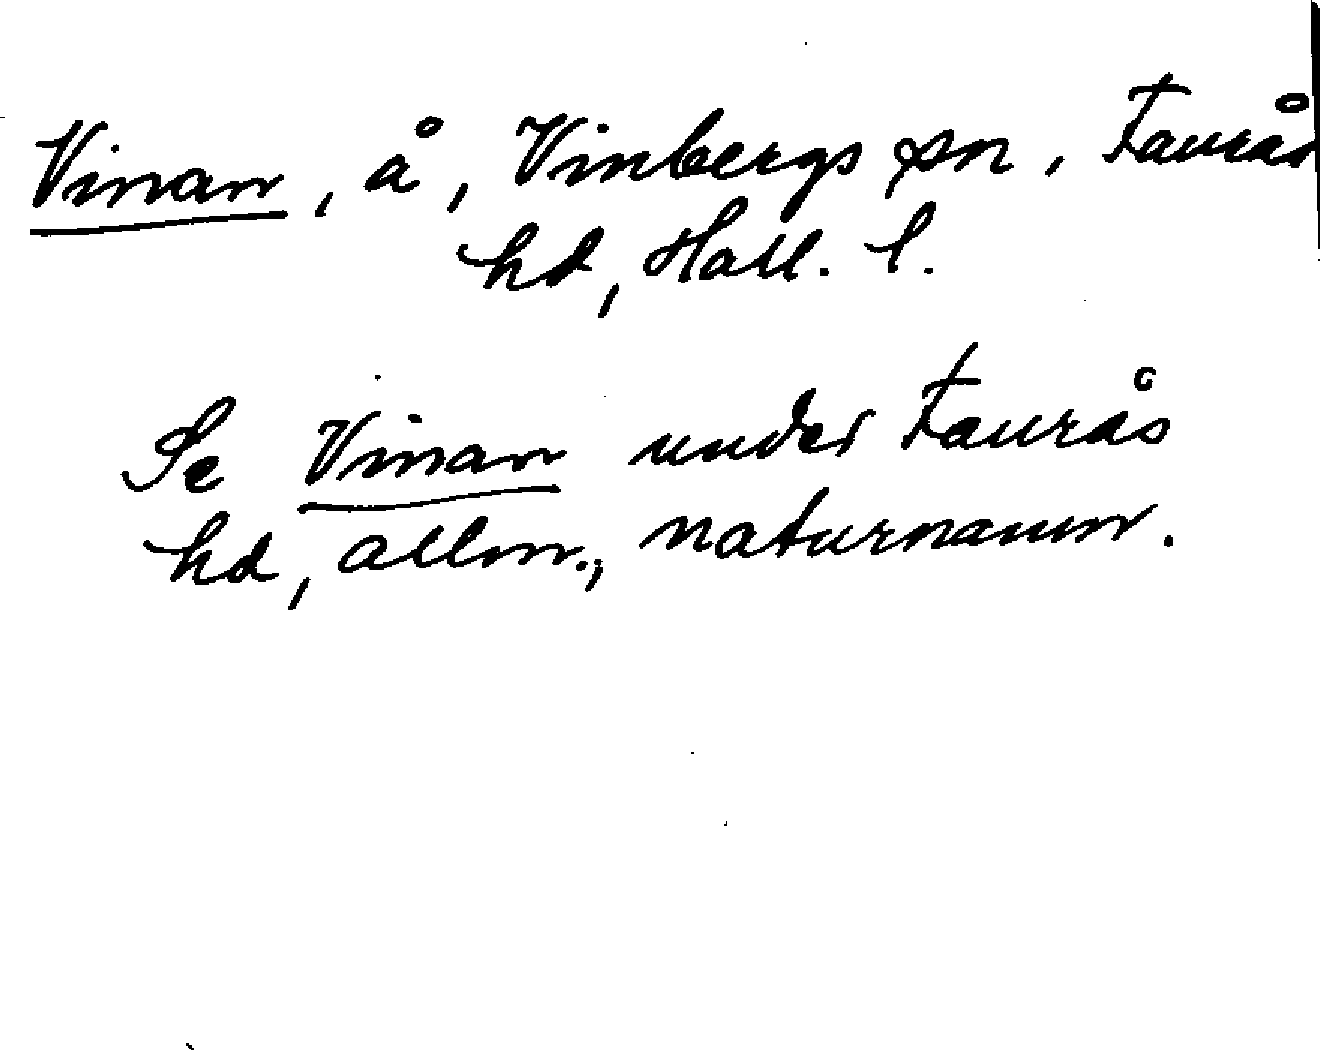 Vinan, å, Vinbergs sn, Faurås
hd, Hall. l.
Se Vinan under Faurås
hd, allm., naturnamn.